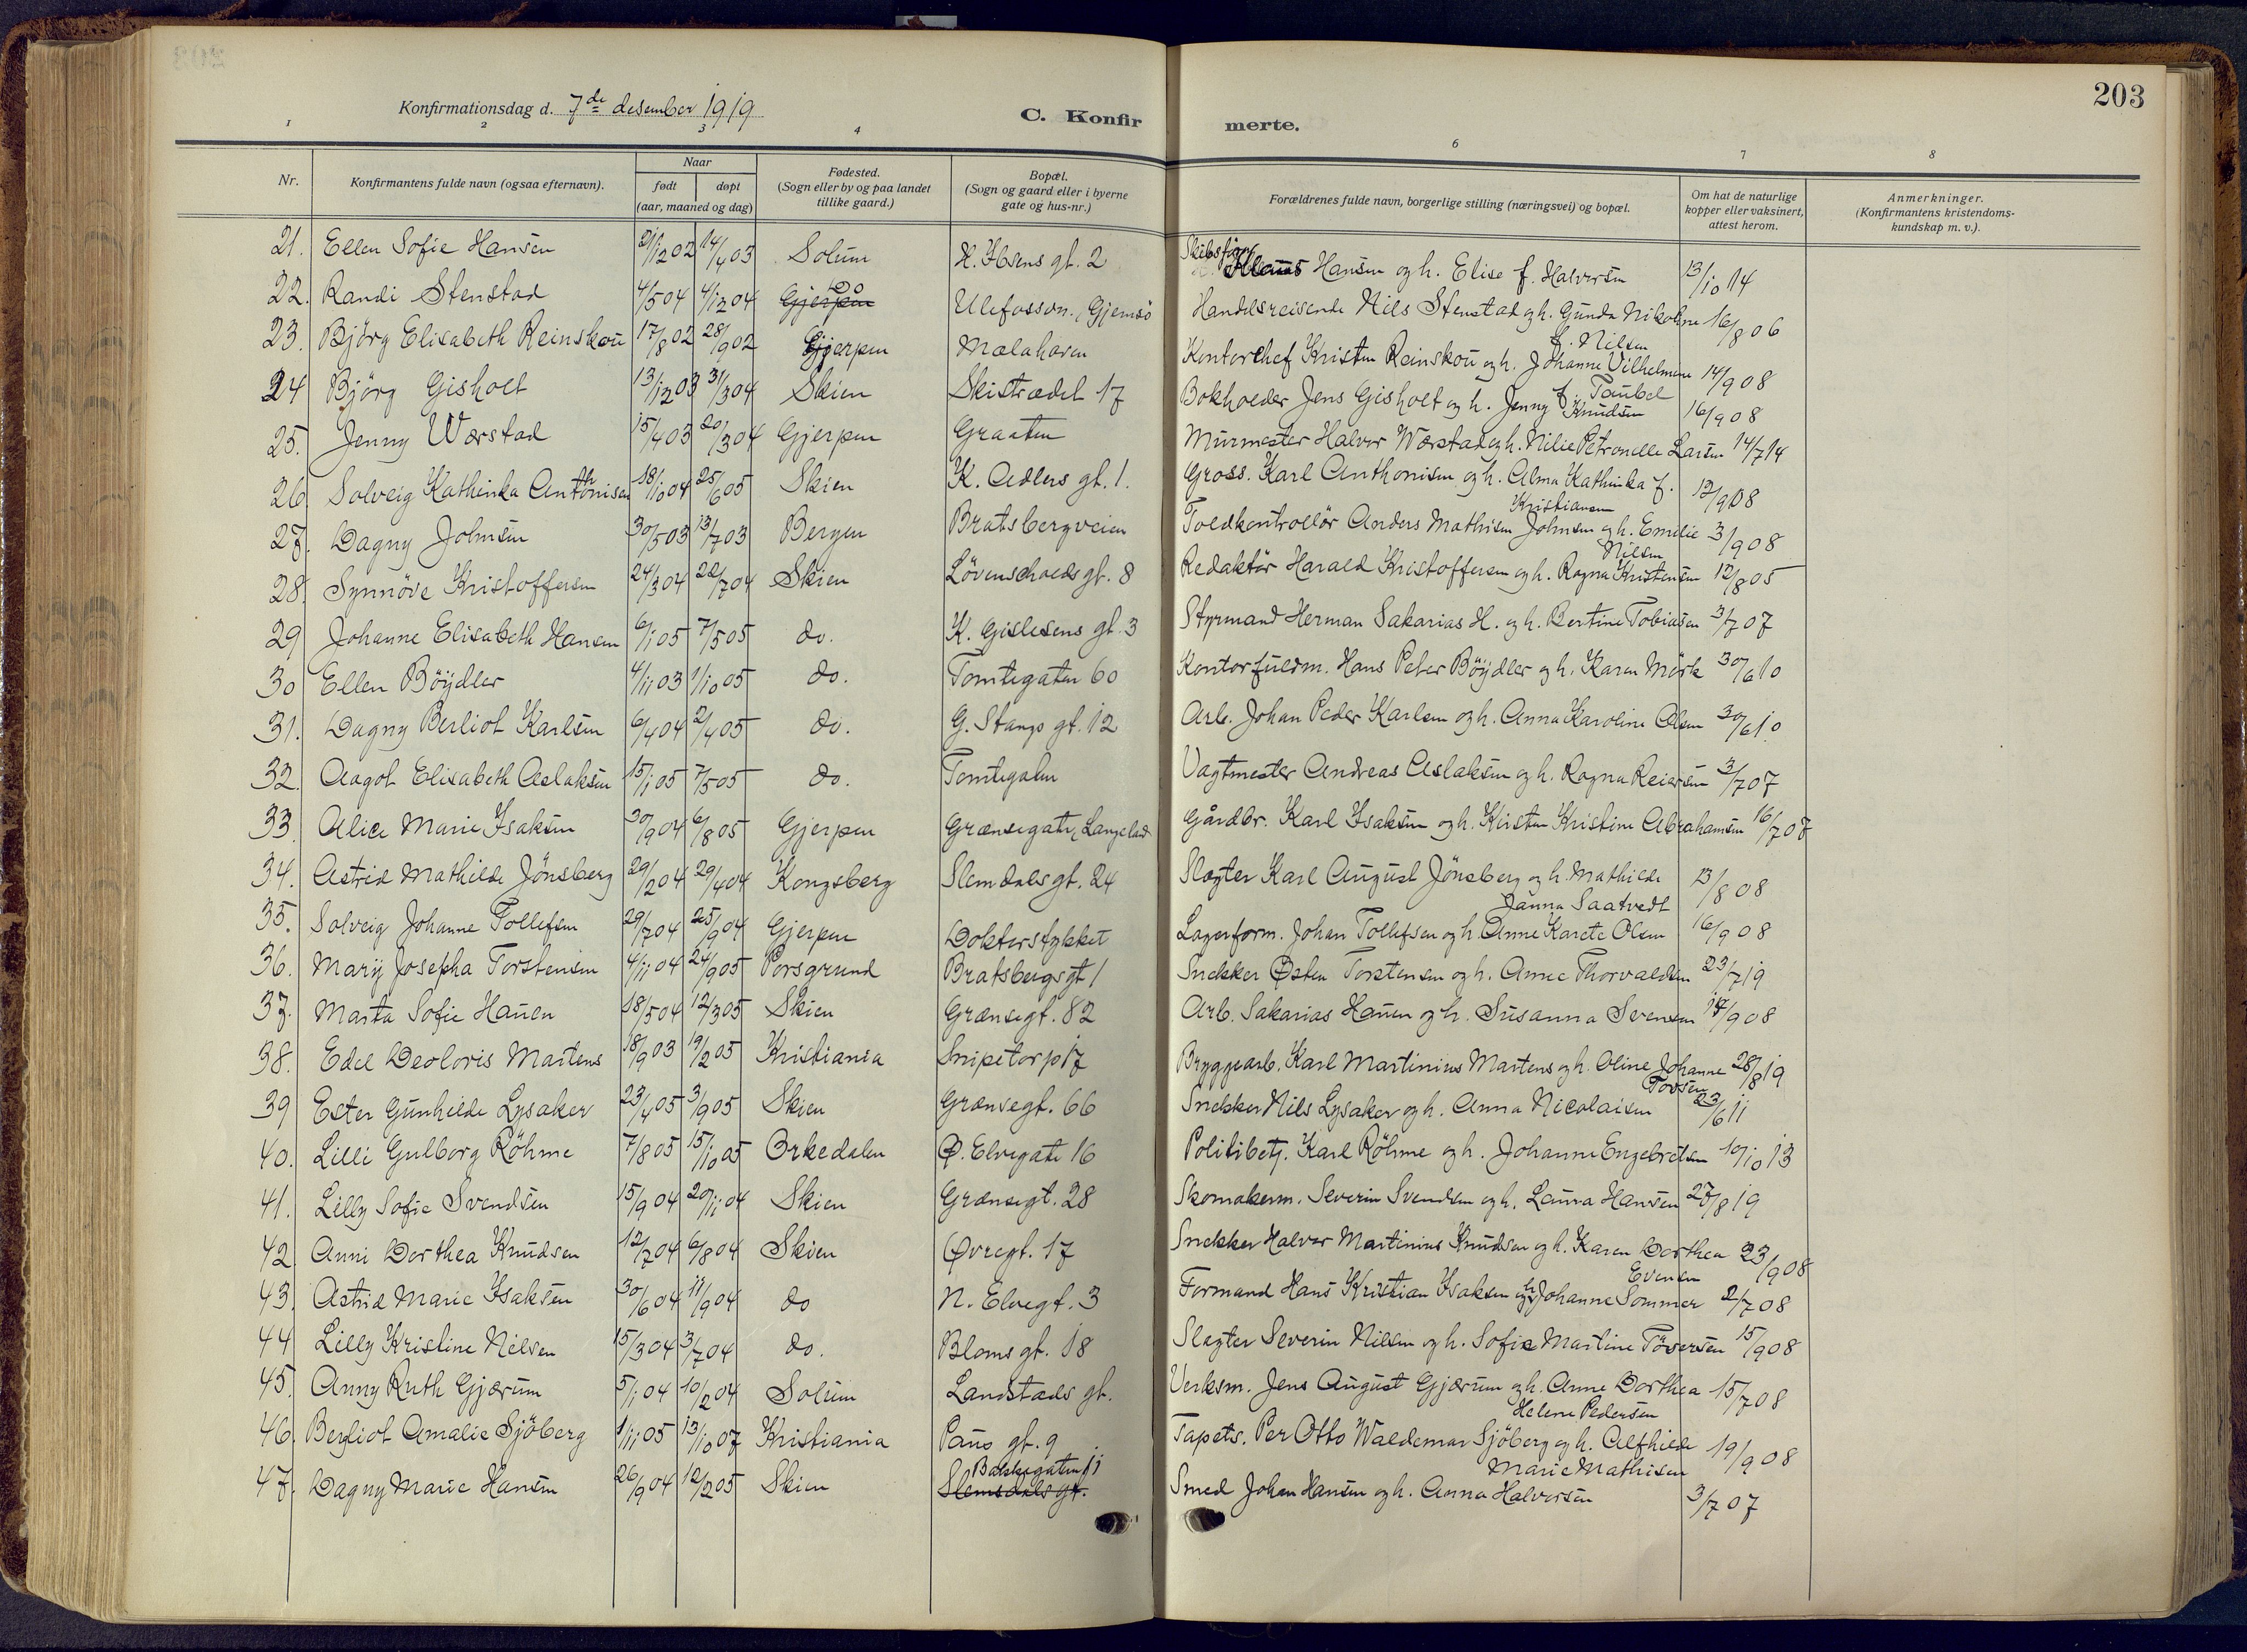 203
Konfirmationsdag d. 7de desember 1919
C. Konfirmerte.
1 2 3 4 6 7 8
Nr. Konfirmantens fulde navn (ogsaa efternavn). Naar født døpt (aar, maaned og dag) Fødested. (Sogn eller by og paa landet tillike gaard.) Bopæl. (Sogn og gaard eller i byerne gate og hus-nr.) Forældrenes fulde navn, borgerlige stilling (næringsvei) og bopæl. Om hat de naturlige kopper eller vaksinert, attest herom. Anmerkninger. (Konfirmantens kristendoms-kundskap m. v.).
21. Ellen Sofie Hansen 21/12 02 14/4 03 Solum H. Ibsens gt. 2 Skibsfører Klaus Hansen og h. Elise f. Halvorsen 13/10 14
22. Randi Stenstad 4/5 04 4/12 04 Gjerpen do Ulefosson., Gjemsö Handelsreisende Nils Stenstad og h. Gunda Nikoline f. Nilsen 16/8 06
23. Björg Elisabeth Reinskou 17/8 02 28/9 02 Gjerpen Mælahaven Kontorchef Kristen Reinskou og h. Johanne Vilhelmine f. Taubel 14/9 08
24 Björg Gisholt 13/12 03 3/3 04 Skien Skistrædet 17 Bokholder Jens Gisholt og h. Jenny Knudsen 16/9 08
25. Jenny Wærstad 15/4 03 20/3 04 Gjerpen Graaten Murmester Halvor Wærstad og h. Nilie Petronelle Larsen 14/7 14
26 Solveig Kathinka Anthonisen 18/10 04 25/6 05 Skien K. Adlers gt. 1. Gross. Karl Anthonisen og h. Alma Kathinka f. Kristiansen 12/9 08
27. Dagny Johnsen 30/5 03 13/7 03 Bergen Bratsbergveien Toldkontrollör Anders Mathisen Johnsen og h. Emilie Nilsen 3/9 08
28. Synnöve Kristoffersen 24/3 04 22/7 04 Skien Lövenscholds gt. 8 Redaktör Harald Kristoffersen og h. Ragna Kristensen 12/8 05
29 Johanne Elisabeth Hansen 6/1 05 7/5 05 do. K. Gislesens gt. 3 Styrmand Herman Sakarias H. og h. Bertine Tobiasen 3/7 07
30 Ellen Böydler 4/11 03 1/10 05 do. Tomtegaten 60 Kontorfuldm. Hans Peter Böydler og h. Karen Mörk 30/6 10
31. Dagny Berliot Karlsen 6/4 04 2/4 05 do. G. Stangs gt. 12 Arb. Johan Peder Karlsen og h. Anna Karoline Olsen 30/6 10.
32. Aagot Elisabeth Aslaksen 15/1 05 7/5 05 do. Tomtegaten Vagtmester Andreas Aslaksen og h. Ragna Reiersen 3/7 07
33. Alice Marie Isaksen 30/9 04 6/8 05 Gjerpen Grænsegaten, Langelad Gårdbr. Karl Isaksen og h. Kirsten Kristine Abrahamsen 16/7 07
34. Astrid Mathilde Jönsberg 29/2 04 29/4 04 Kongsberg Slemdals gt. 24 Slagter Karl August Jönsberg og h. Mathilde Janna Saatvedt 13/8 08
35. Solveig Johanne Tollefsen 29/7 04 25/9 04 Gjerpen Doktorstykket Lagerform. Johan Tollefsen og h. Anne Karete Olsen 16/9 08
36. Mary Josepha Torstensen 4/11 04 24/9 05 Porsgrund Bratsbergsgt 1 Snekker Østen Torstensen og h. Anne Thorvaldsen 23/7 19
37. Marta Sofie Hauen 18/5 04 12/3 05 Skien Grænsegt. 82 Arb. Sakarias Hauen og h. Susanna Svensen 14/9 08
38. Edel Deoloris Martens 18/9 03 19/2 05 Kristiania Snipetorp 17 Bryggearb. Karl Martinius Martens og h. Oline Johanne Tovsen 28/8 19
39 Ester Gunhilde Lysaker 23/4 05 3/9 05 Skien Grænsegt. 66 Snekker Nils Lysaker og h. Anna Nicolaisen 23/6 11
40. Lilli Gulborg Röhme 7/8 05 15/10 05 Orkedalen Ø. Elvegate 16 Politibetj. Karl Röhme og h. Johanne Engebretsen 10/10 13
41. Lilly Sofie Svendsen 15/9 04 20/11 04 Skien Grænsegt. 28 Skomakerm. Severin Svendsen og h. Laura Hansen 27/8 19
42. Anni Dorthea Knudsen 12/7 04 6/8 04 Skien Øvregt. 17 Snekker Halvor Martinius Knudsen og h. Karen Dorthea Evensen 23/9 08
43. Astrid Marie Isaksen 30/6 04 11/9 04 do N. Elvegt. 3 Formand Hans Kristian Isaksen og h. Johanne Sommer 2/7 08
44 Lilly Kristine Nilsen 15/3 04 3/7 04 do. Bloms gt. 18 Slagter Severin Nilsen og h. Sofie Martine Töversen 15/9 08
45. Anny Ruth Gjærum 5/1 04 10/2 04 Solum Landstads gt. Verksm. Jens August Gjærum og h. Anne Dorthea Helene Pedersen 15/7 08
46. Bergliot Amalie Sjöberg 1/11 05 13/10 07 Kristiania Paus gt. 9 Tapets. Per Otto Waldemar Sjöberg og h. Alfhilde Marie Mathisen 19/9 08
47. Dagny Marie Hansen 26/9 04 12/2 05 Skien Bakkegaten 11 Slemsdals gt. Smed Johan Hansen og h. Anna Halvorsen 3/7 07